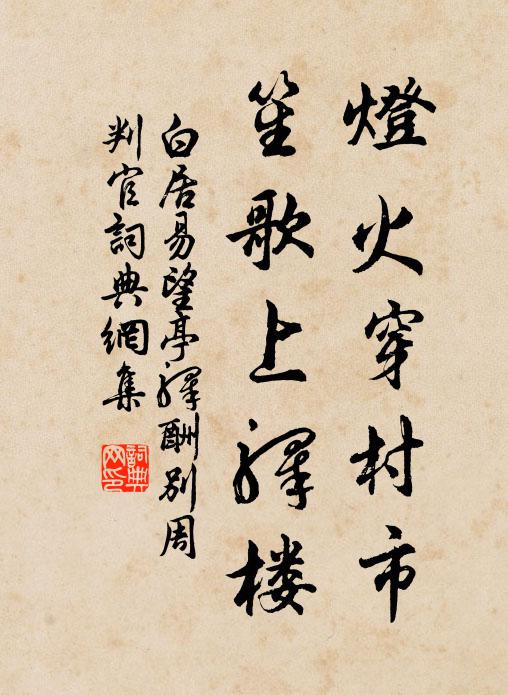 燈火穿村市
笙歌上驛楼
白居易望亭驛酬別周
判官詞典網集
詞典
网印